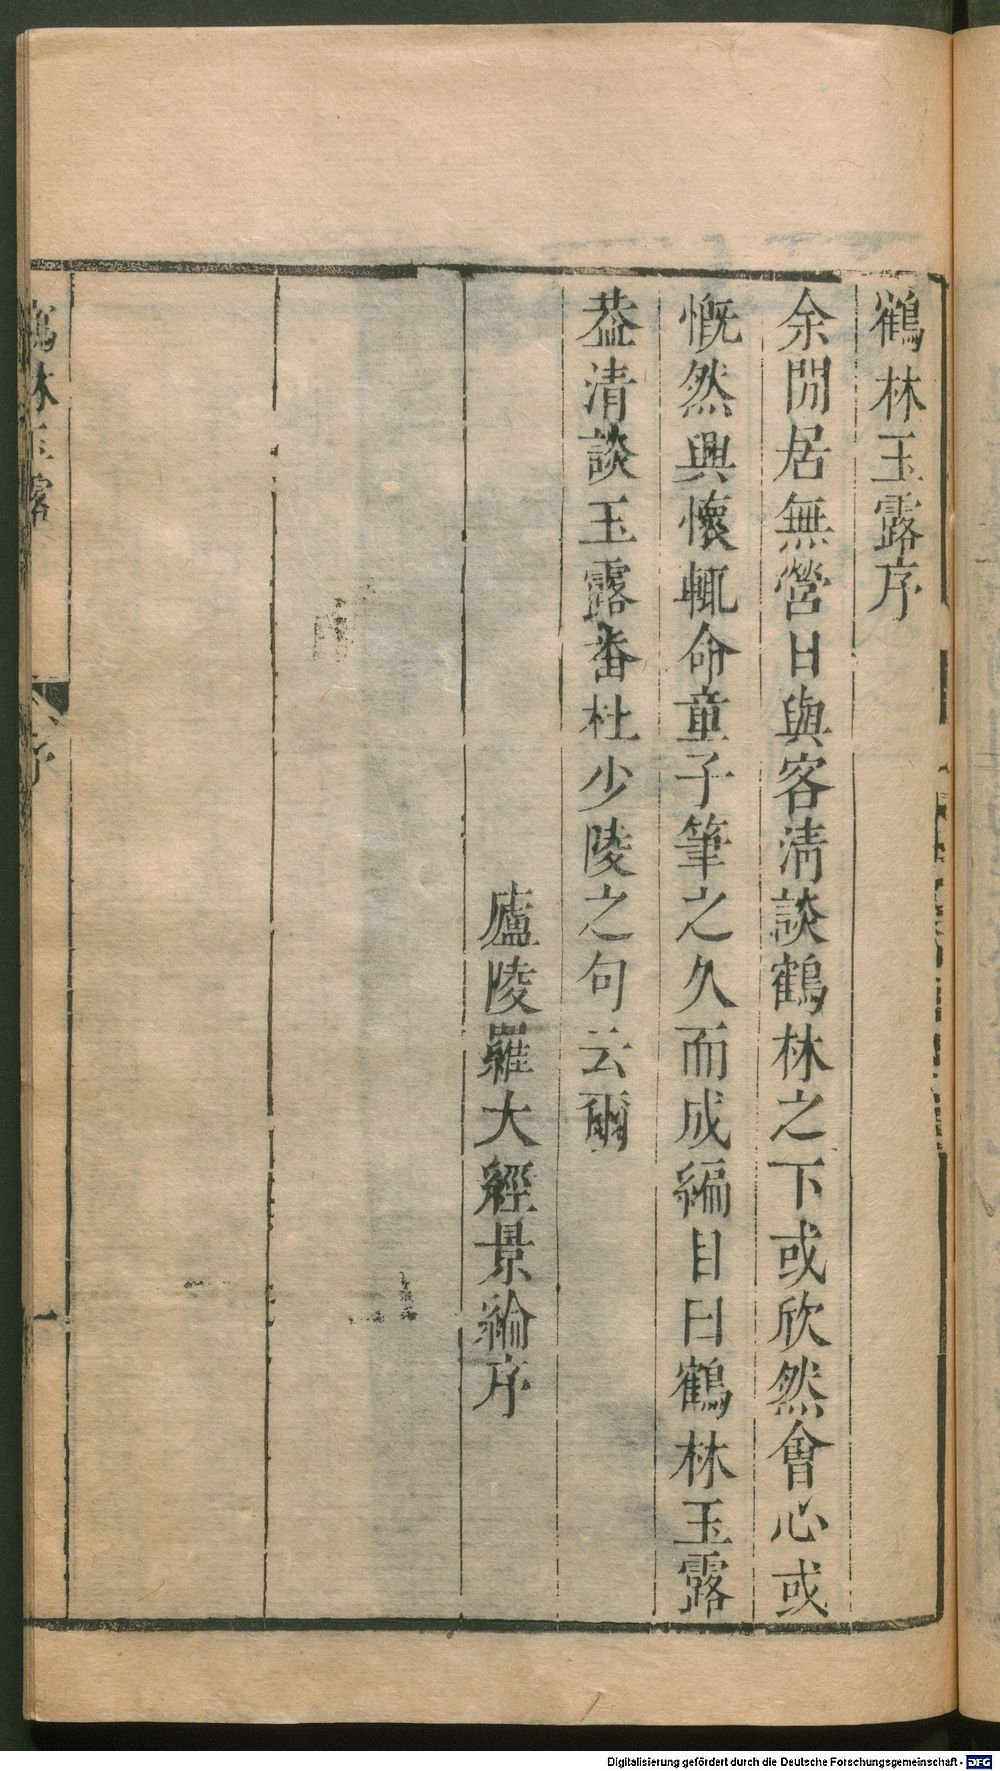 鶴林玉露序
余閒居無營日與客清談鶴林之下或欣然會心或
慨然興懷輒命童子筆之久而成編目曰鶴林玉露
葢清談玉露蕃杜少陵之句云爾
廬陵羅大經景綸序
鶴林玉露
序
一
Digitalisierung gefördert durch die Deutsche Forschungsgemeinschaft - DFG